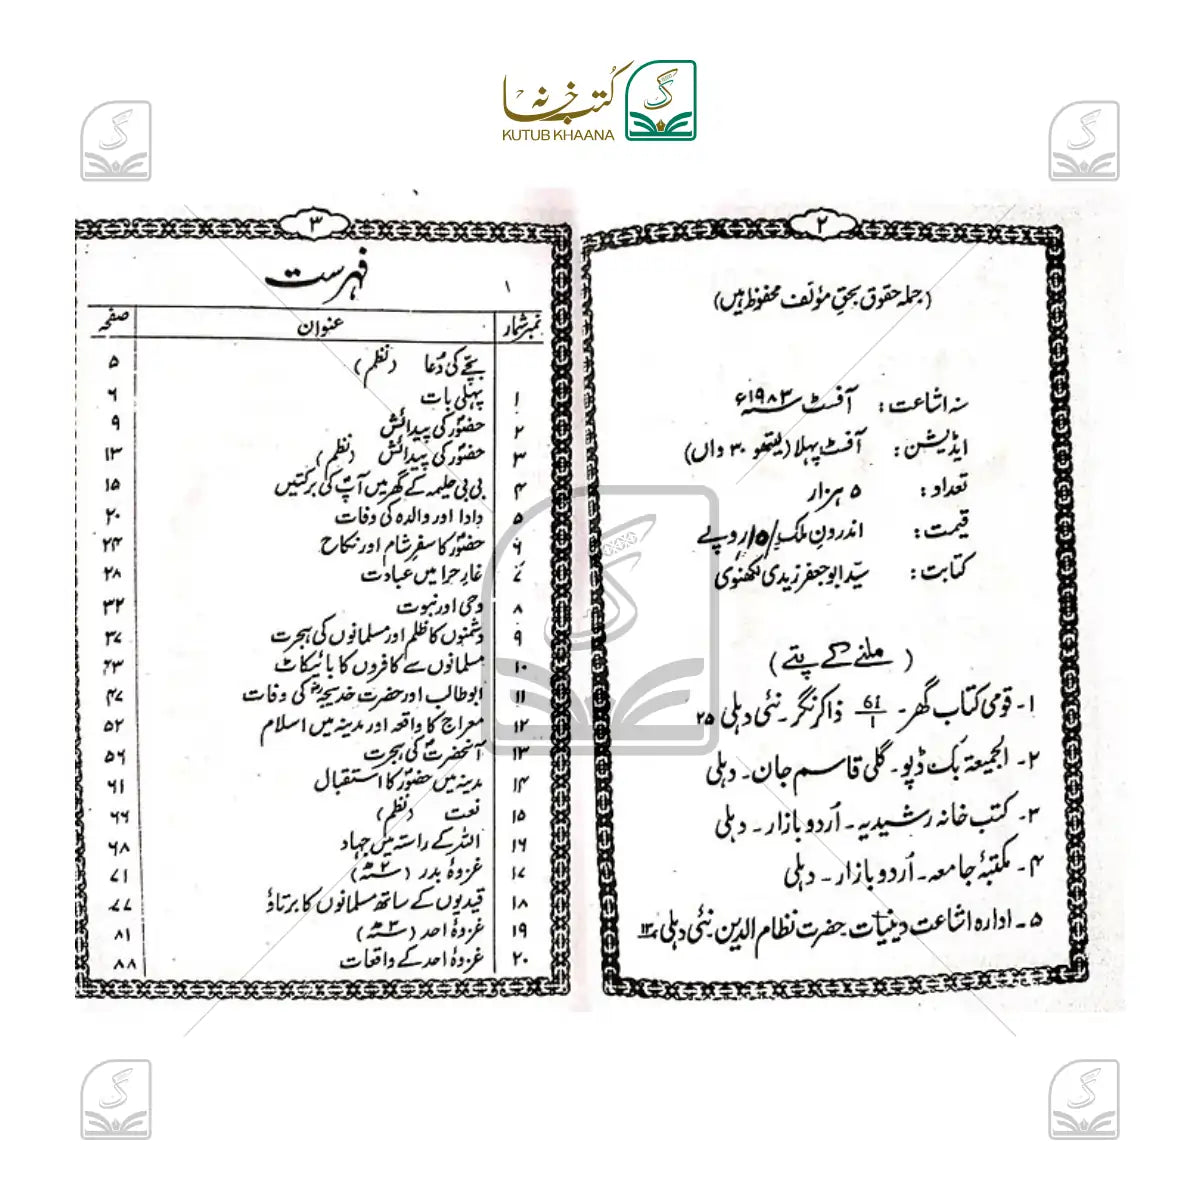 کتب خانہ
KUTUB KHAANA
۲
(جملہ حقوق بحق مؤلف محفوظ ہیں)
سنہ اشاعت: آفسٹ ۱۹۸۳ء
ایڈیشن: آفسٹ پہلا (لیتھو ۳۰ واں)
تعداد: ۵ ہزار
قیمت: اندرون ملک /۱۵ روپے
کتابت: سید ابو جعفر زیدی لکھنوی
(ملنے کے پتے)
۱- قومی کتاب گھر- 61/1 ذاکر نگر- نئی دہلی ۲۵
۲- الجمیعۃ بک ڈپو- گلی قاسم جان- دہلی
۳- کتب خانہ رشیدیہ- اُردو بازار- دہلی
۴- مکتبۂ جامعہ- اُردو بازار- دہلی
۵- ادارہ اشاعت دینیات- حضرت نظام الدین- نئی دہلی ۱۳
۳
فہرست
۱
نمبر شمار عنوان صفحہ
بچے کی دُعا (نظم) ۵
۱ پہلی بات ۶
۲ حضورؐ کی پیدائش ۹
۳ حضورؐ کی پیدائش (نظم) ۱۳
۴ بی بی حلیمہ کے گھر میں آپؐ کی برکتیں ۱۵
۵ دادا اور والدہ کی وفات ۲۰
۶ حضورؐ کا سفرِ شام اور نکاح ۲۴
۷ غارِ حرا میں عبادت ۲۸
۸ وحی اور نبوت ۳۲
۹ دشمنوں کا ظلم اور مسلمانوں کی ہجرت ۳۷
۱۰ مسلمانوں سے کافروں کا بائیکاٹ ۴۳
۱۱ ابوطالب اور حضرت خدیجہؓ کی وفات ۴۷
۱۲ معراج کا واقعہ اور مدینہ میں اسلام ۵۲
۱۳ آنحضرتؐ کی ہجرت ۵۶
۱۴ مدینہ میں حضورؐ کا استقبال ۶۱
۱۵ نعت (نظم) ۶۶
۱۶ اللہ کے راستہ میں جہاد ۶۸
۱۷ غزوۂ بدر (۲ھ) ۷۱
۱۸ قیدیوں کے ساتھ مسلمانوں کا برتاؤ ۷۷
۱۹ غزوۂ احد (۳ھ) ۸۱
۲۰ غزوۂ احد کے واقعات ۸۸